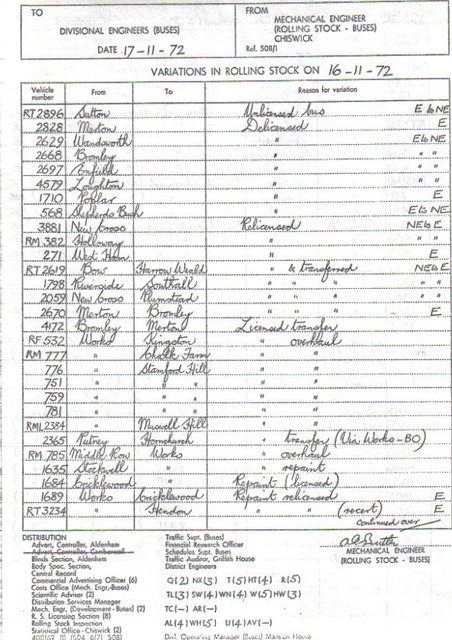 TO
DIVISIONAL ENGINEERS (BUSES)
DATE 17-11-72
FROM
MECHANICAL ENGINEER
(ROLLING STOCK - BUSES)
CHISWICK
Ref. 508/1
VARIATIONS IN ROLLING STOCK ON 16-11-72
Vehicle number From To Reason for variation
RT2896 Sutton Unlicensed bus E to NE
2828 Merton Delicensed E
2629 Wandsworth " E to NE
2668 Bromley " " "
2697 Enfield " " "
4579 Loughton " " "
1710 Poplar " E
568 Shepherds Bush " E to NE
3881 New Cross Relicensed NE to E
RM 382 Holloway " " "
271 West Ham " E
RT2619 Bow Harrow Weald " & transferred NE to E
1798 Riverside Southall " " " " "
2059 New Cross Plumstead " " " " "
2670 Merton Bromley " " " E
4172 Bromley Merton Licensed transfer
RF 532 Works Kingston " overhaul
RM 777 " Chalk Farm " "
776 " Stamford Hill " "
751 " " " " "
759 " " " " "
781 " " " " "
RML 2384 " Muswell Hill " "
2365 Putney Hornchurch " transfer (Via Works - BO)
RM 785 Middle Row Works " overhaul
1635 Stockwell " " repaint
1684 Cricklewood " Repaint (licensed)
1689 Works Cricklewood Repaint relicensed E
RT3234 " Hendon " " (recert) E
continued over
DISTRIBUTION
Advert. Controller, Aldenham
Advert. Controller, Camberwell
Blinds Section, Aldenham
Body Spec. Section,
Central Record
Commercial Advertising Officer (6)
Costs Office (Mech. Engr.-Buses)
Scientific Adviser (2)
Distribution Services Manager
Mech. Engr. (Development - Buses) (2)
R. S. Licensing Section (8)
Rolling Stock Inspection
Statistical Office - Chiswick (2)
Traffic Supt. (Buses)
Financial Research Officer
Schedules Supt. Buses
Traffic Auditor, Griffith House
District Engineers
Q(2) NX(3) T(5) H(4) R(5)
TL(3) SW(4) WN(4) W(5) HW(3)
TC(-) AR(-)
AL(4) WH(5) U(4) AV(-)
Divl. Operating Manager (Buses) Mansion House
MECHANICAL ENGINEER
(ROLLING STOCK - BUSES)